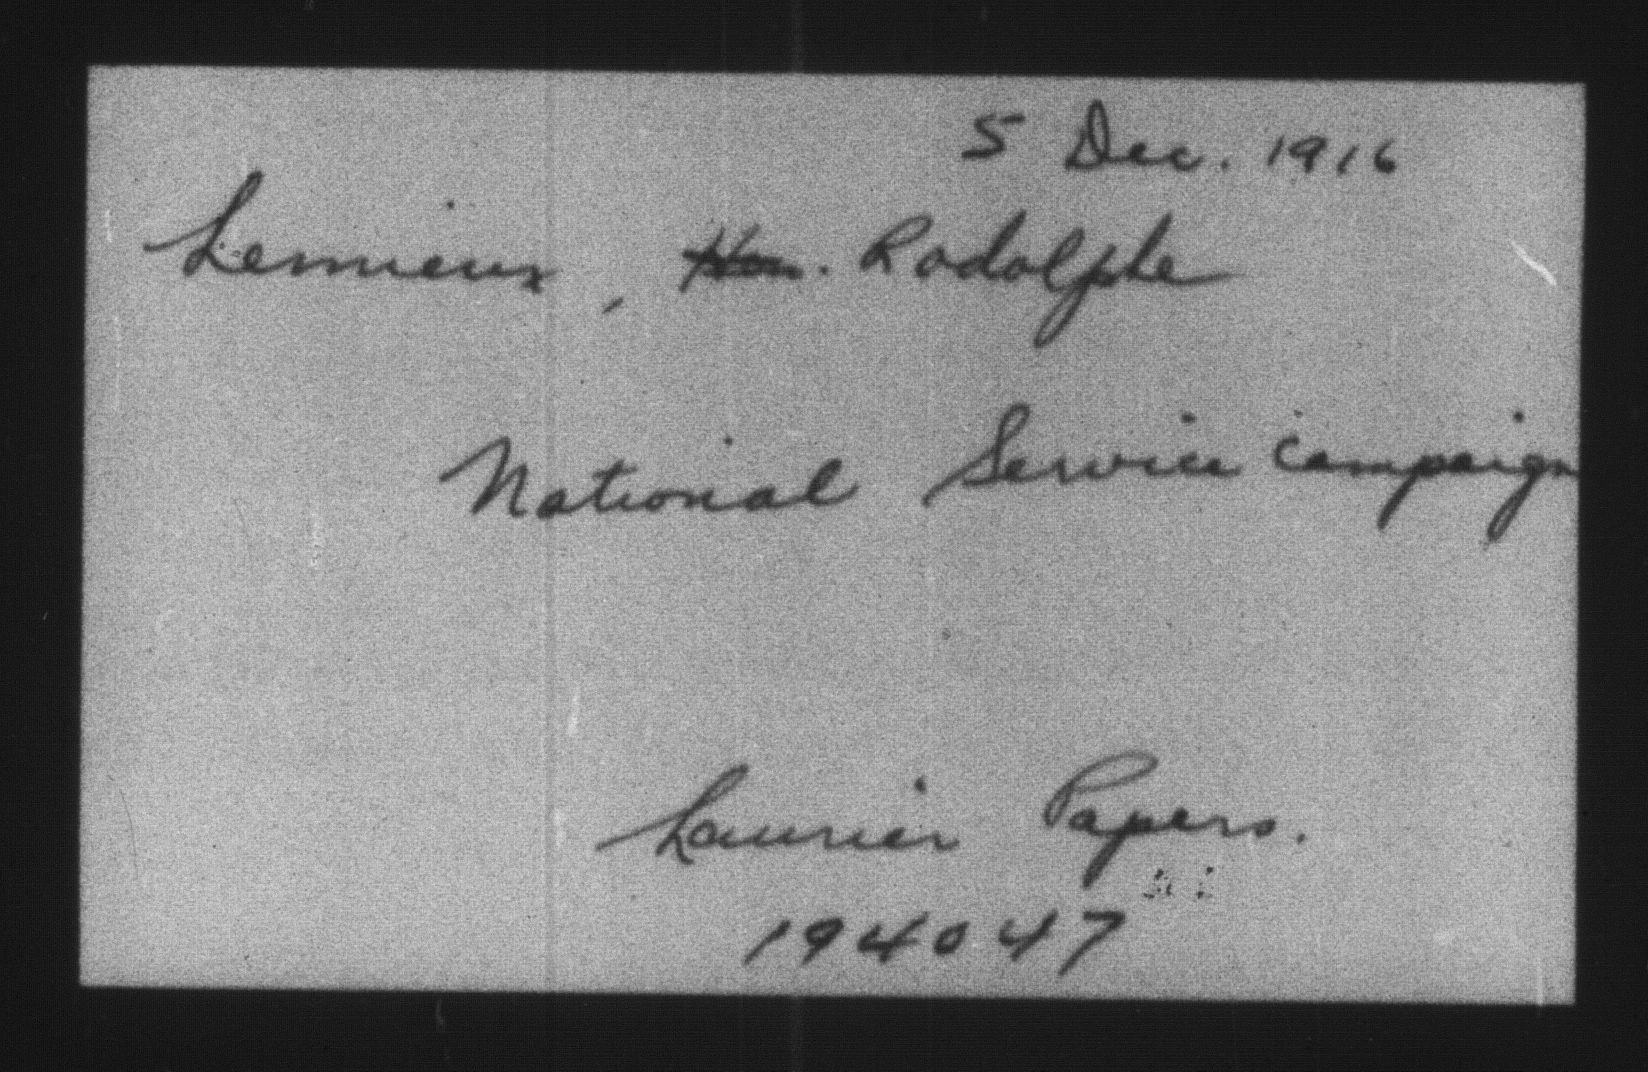 5 Dec. 1916
Lemieux, Hon. Rodolphe
National Service campaign
Laurier Papers.
194047